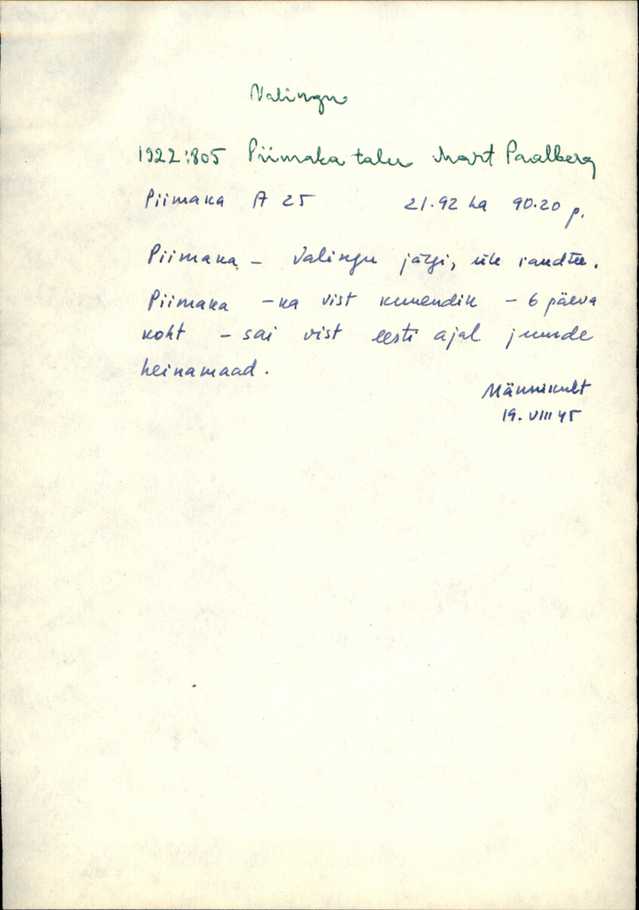 Valingu
1922:805 Piimaka talu Mart Paalberg
Piimaka A 25 21.92 ha 90.20 p.
Piimaka – Valingu järgi, üle raudtee.
Piimaka – ka vist kuuendik – 6 päeva
koht – sai vist eesti ajal juurde
heinamaad.
Männikult
19. VIII 45